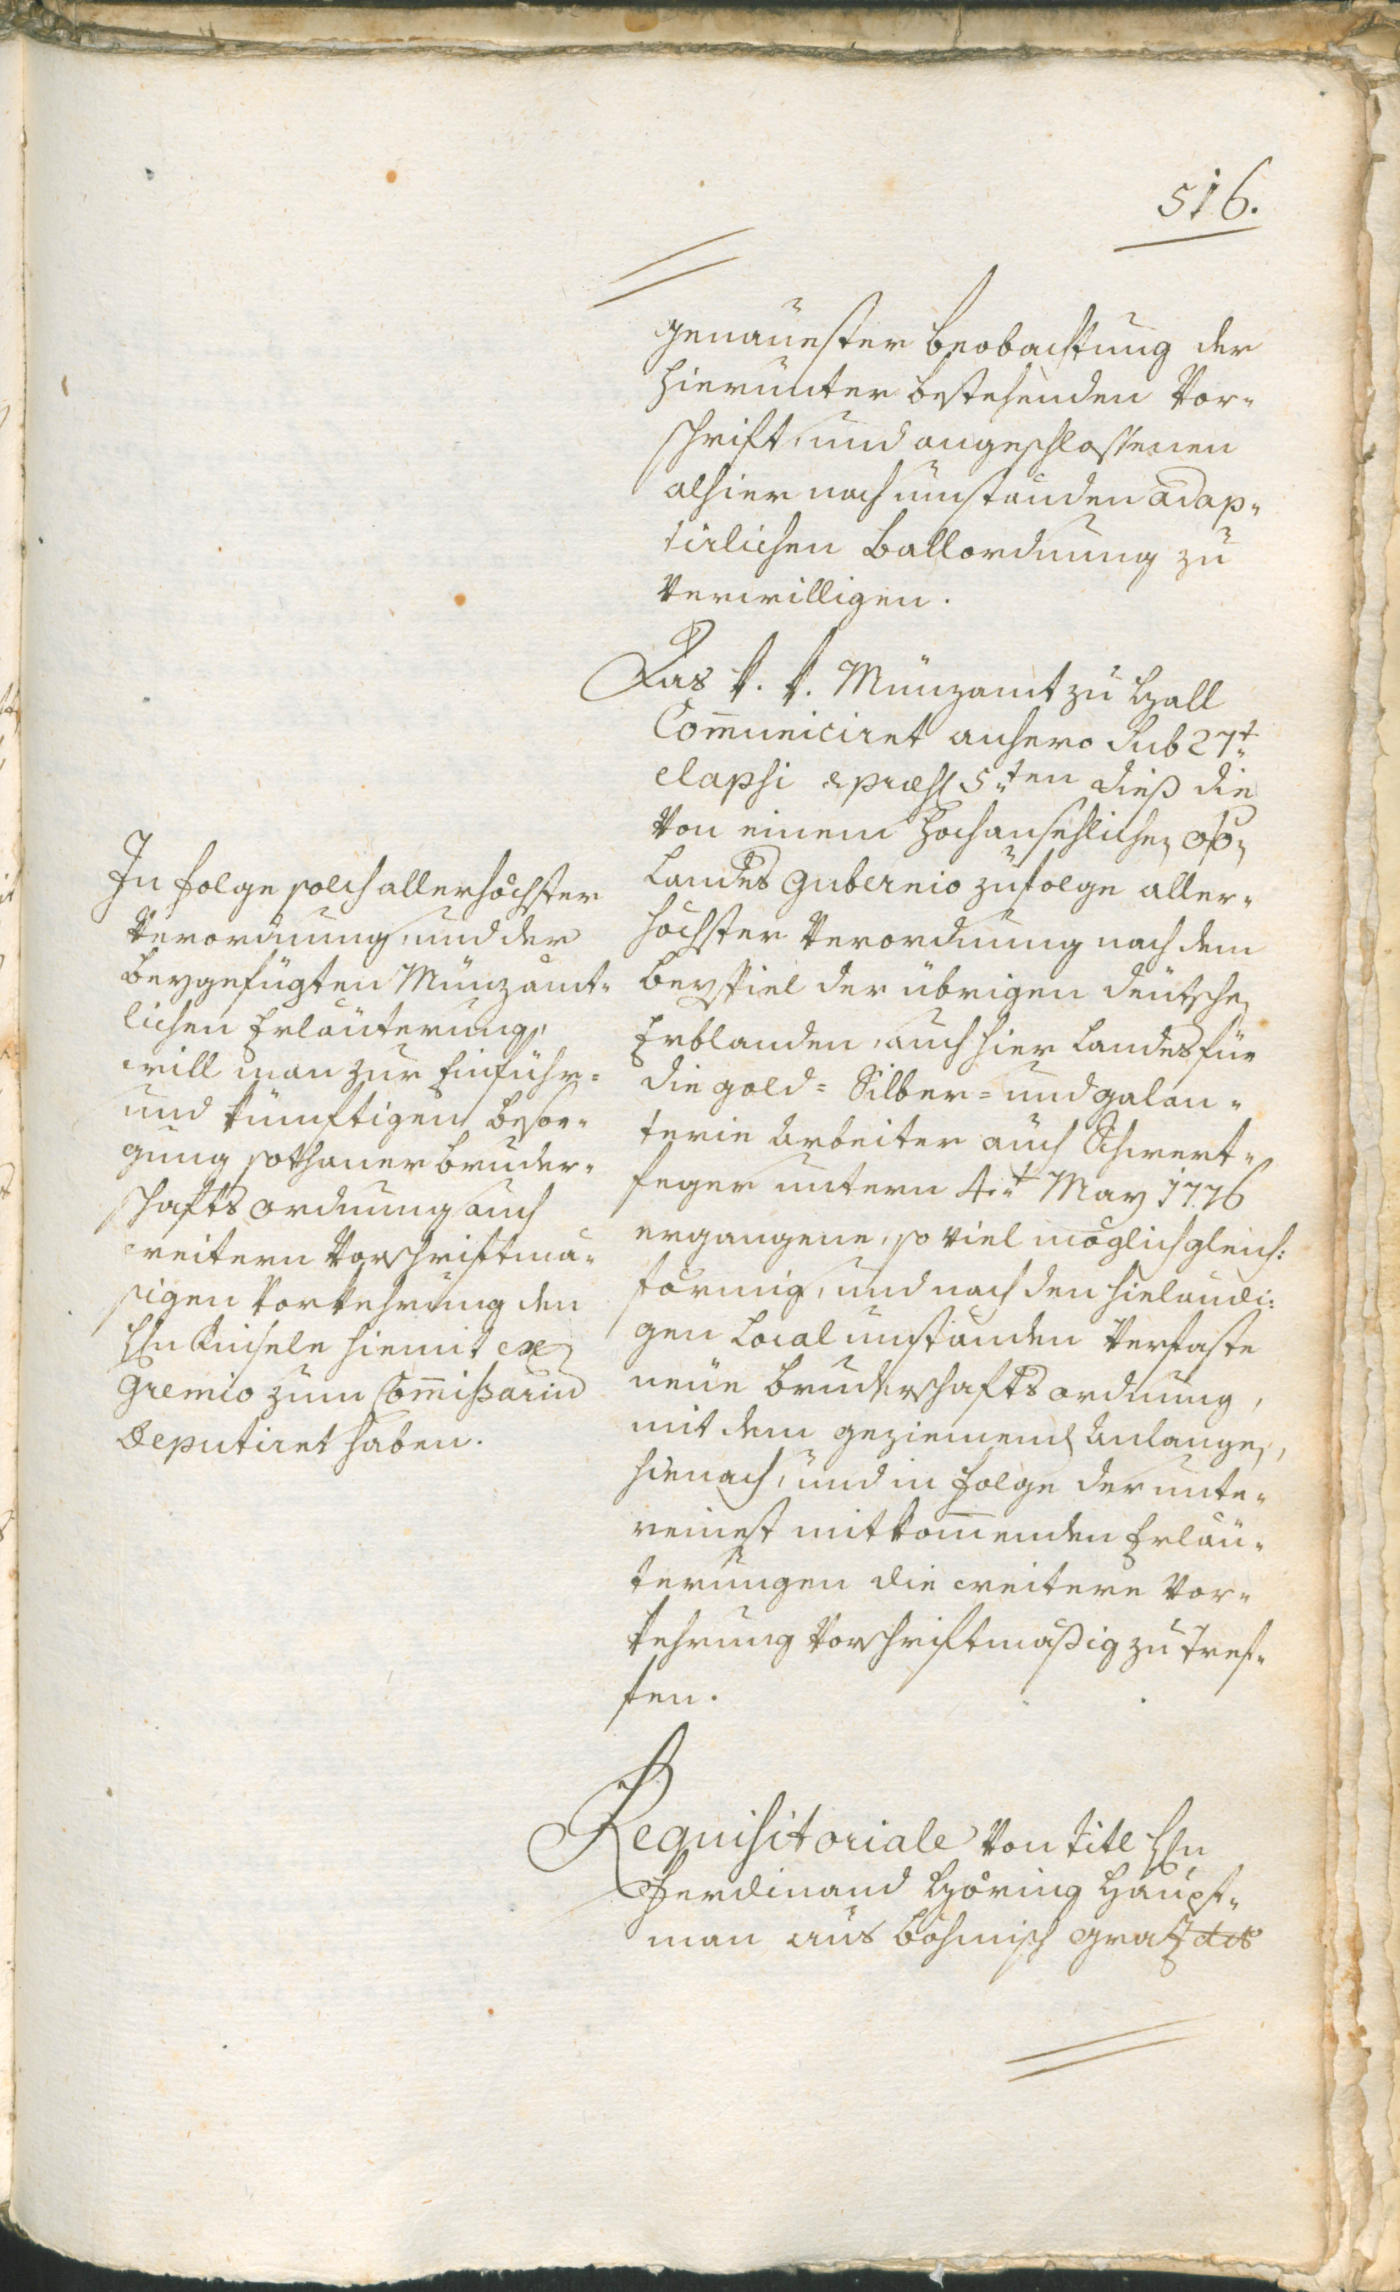 516.
genauester Beobachtung der
hierunter bestehenden Vor-
schrift, und angeschlossenen
alhier nach umständen adap-
tirlichen Ballordnung zu
verwilligen.
Das k. k. Münzamt zu Hall
Communiciret anhero Sub 27t
elapsi & præs 5ten dieß die
von einem Hochansehlichen o:ö:
Landes Gubernio zufolge aller-
höchster Verordnung nach dem
Beyspiel der übrigen deutschen
Erblanden, auch hier Landes für
die gold- Silber- und galan-
terie arbeiter auch Schwert-
feger untern 4.t May 1776
ergangene, so viel möglich gleich-
förmig, und nach den hieländi-
gen Local umständen verfaste
neue bruderschafts ordnung,
mit dem geziemend Anlangen,
hienach, und in folge der unte-
reinest mitkommenden Erläu-
terungen die weitere Vor-
kehrung Vorschriftmäßig zu tref-
fen.
In folge solch allerhöchster
Verordnung, und der
beygefügten Münzamt-
lichen Erläuterung,
will man zur Einführ-
und künftigen besor-
gung sothaner bruder-
schafts ordnung auch
weitern Vorschriftmä-
sigen Vorkehrung den
Hrn hiemit ex
Gremio zum Commissario
Deputiret haben.
Requisitoriale von titl Hrn
Ferdinand Göring Haupt-
man aus böhmisch gratz des